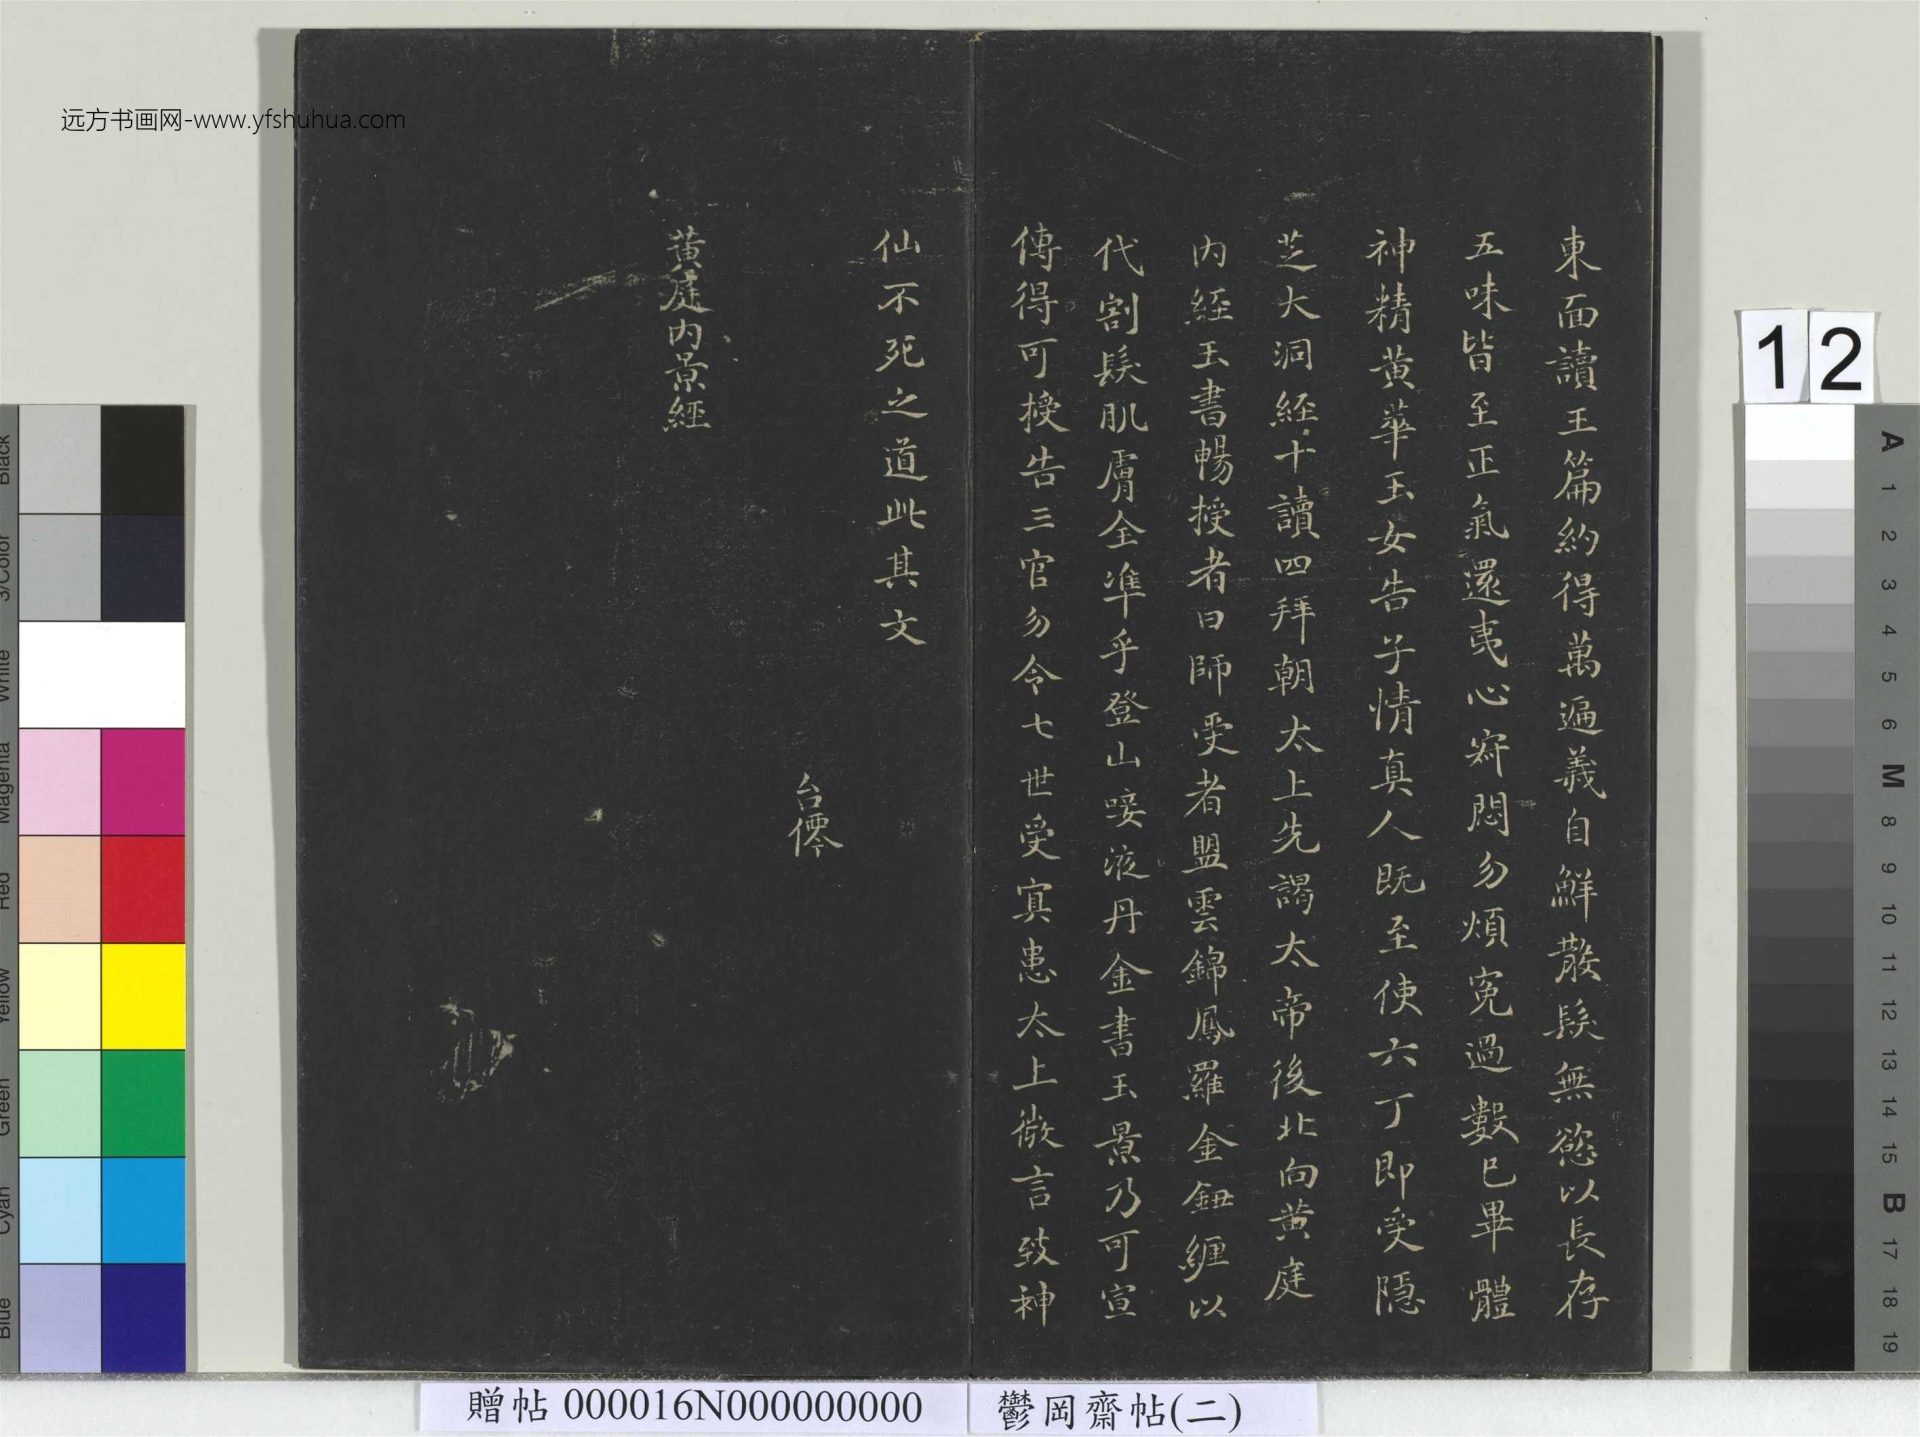 远方书画网-www.yfshuhua.com
東面讀玉篇約得萬遍義自鮮散髮無慾以長存
五味皆至正氣還夷心寂悶勿煩冤過數已畢體
神精黄華玉女告子情真人既至使六丁即受隱
芝大洞經十讀四拜朝太上先謁太帝後北向黄庭
内經玉書暢授者曰師受者盟雲錦鳳羅金鈕纏以
代割髮肌膚全準乎登山唼液丹金書玉景乃可宣
傳得可授告三官勿令七世受寘患太上微言致神
仙不死之道此其文
台儒
黄庭内景經
12
A 1 2 3 4 5 6 M 8 9 10 11 12 13 14 15 B 17 18 19
Black
3/Color
White
Magenta
Red
Yellow
Green
Cyan
Blue
贈帖 000016N000000000
鬱岡齋帖(二)